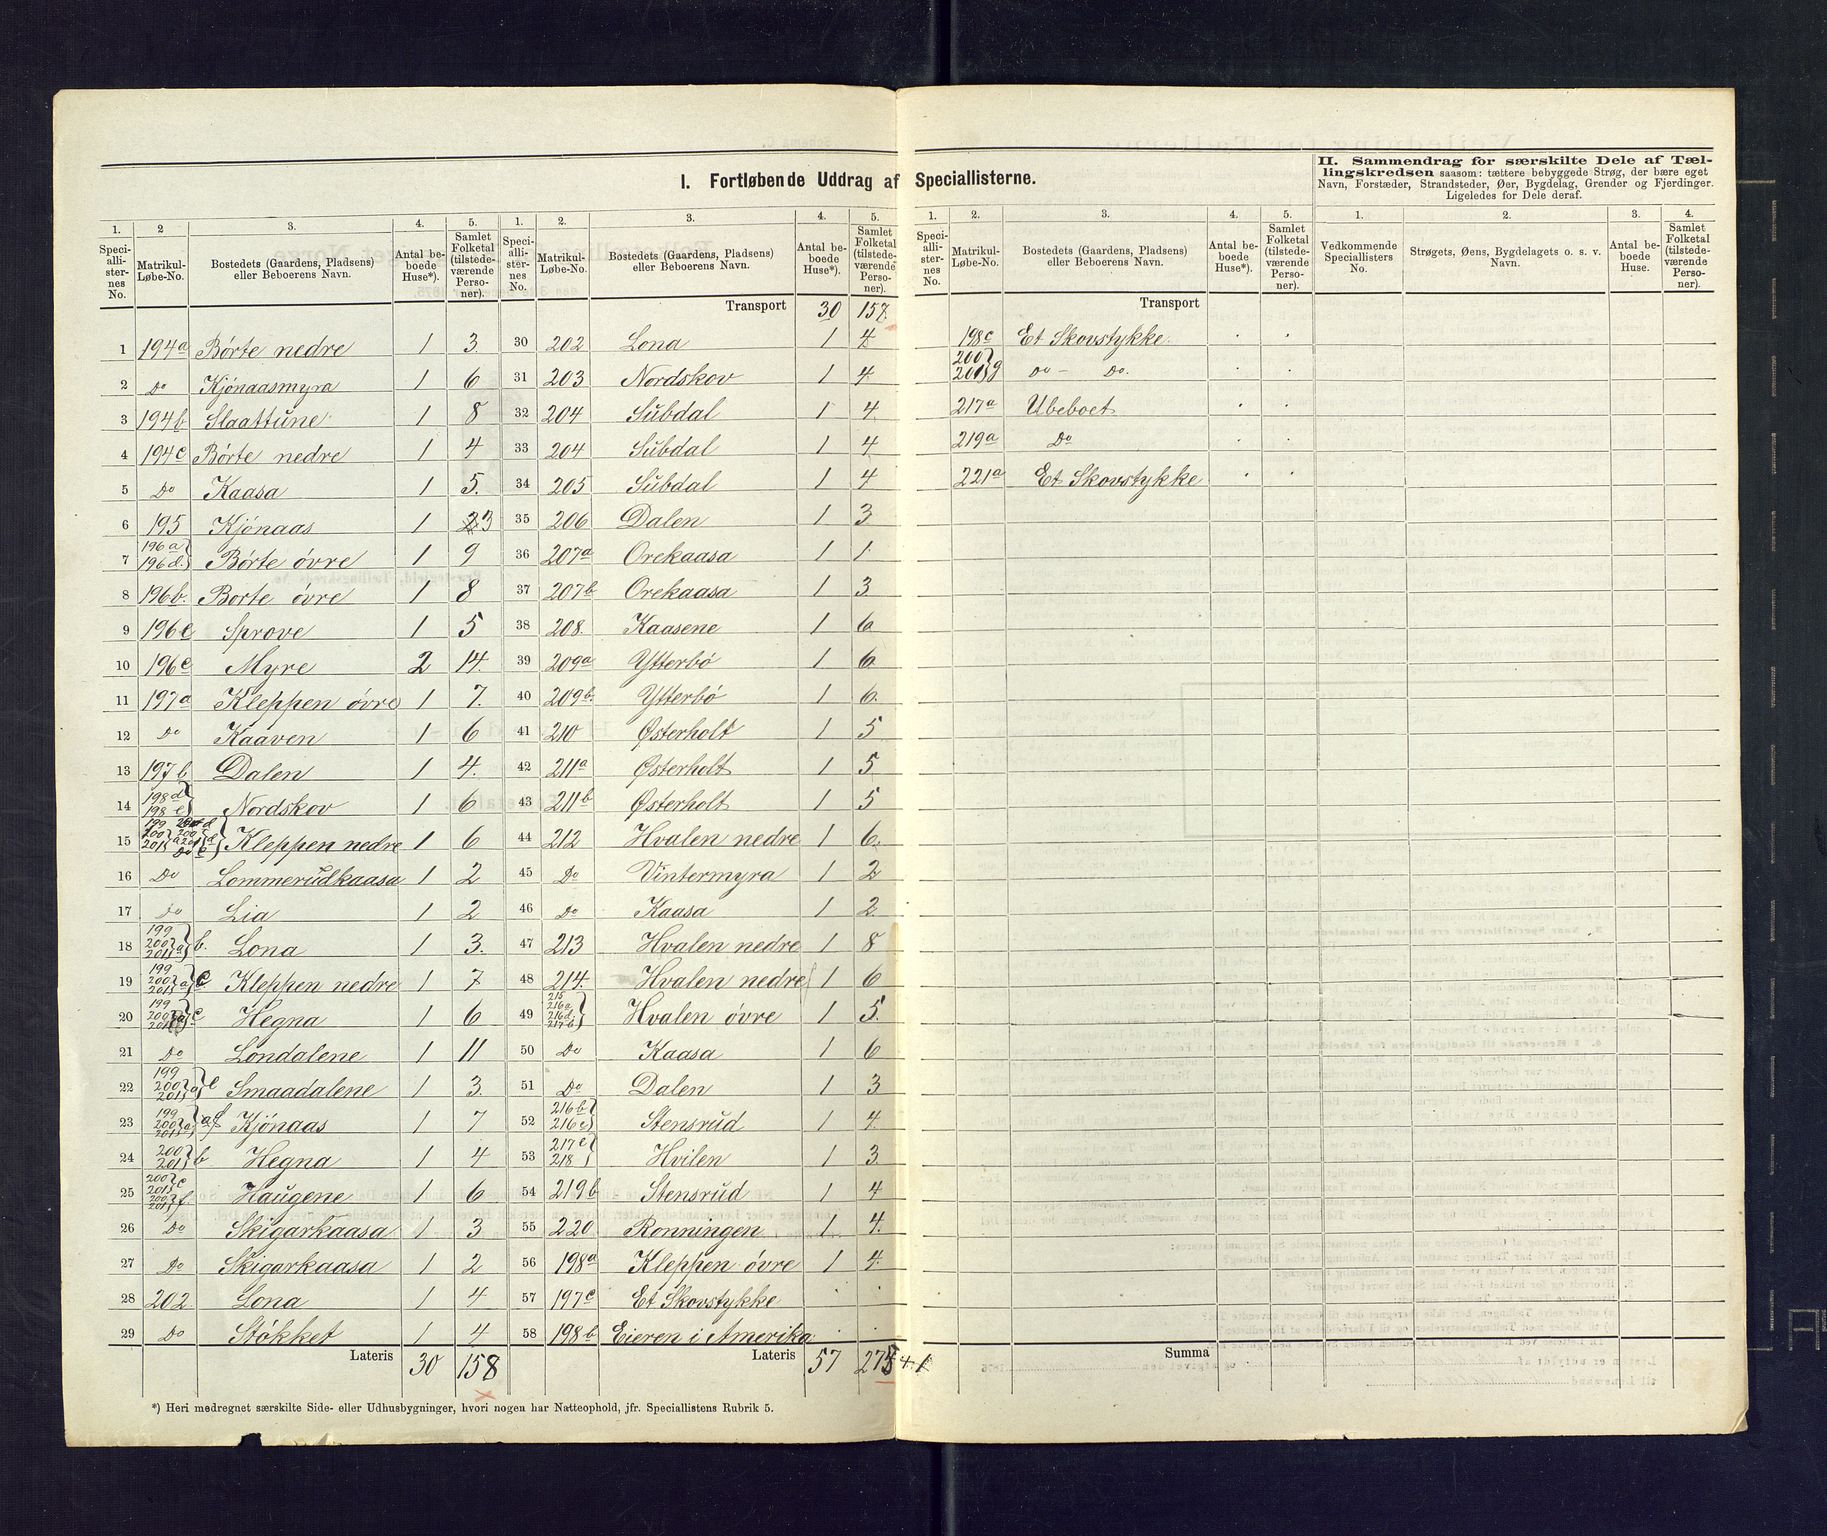 I. Fortløbende Uddrag af Speciallisterne.
II. Sammendrag for særskilte Dele af Tællingskredsen saasom: tættere bebyggede Strøg, der bære eget
Navn, Forstæder, Strandsteder, Øer, Bygdelag, Grender og Fjerdinger.
Ligeledes for Dele deraf.
1. 2 3. 4. 5.
Speciallisternes No. Matrikul-Løbe-No. Bostedets (Gaardens, Pladsens) eller Beboerens Navn. Antal beboede Huse*). Samlet Folketal (tilstedeværende Personer).
1 194a Børte nedre 1 3.
2 Do Kjønaasmyra 1 6
3 194b Slaattune 1 8
4 194c Børte nedre 1 4
5 Do Kaasa 1 5.
6 195 Kjønaas 1 3
7 196a 196d Børte øvre 1 9
8 196b. Borte øvre 1 8
9 196e Sprove 1 5
10 196c Myre 2 14.
11 197a Kleppen øvre 1 7.
12 Do Kaaven 1 6
13 197b Dalen 1 4.
14 198d 198e Nordskov 1 6
15 Kleppen nedre 1 6
16 Do Lommerudkaasa 1 2
17 Do Lia 1 2
18 199 200 201 a b. Lona 1 3.
19 199 200 201 a c Kleppen nedre 1 7
20 199 200 201 c Hegna 1 6
21 Do Londalene 1 11
22 199 200 201 a e Smaadalene 1 3.
23 199 200 201 a f Kjønaas 1 7
24 200 201 b Hegna 1 4
25 200 201 c 200 201 f. Haugene 1 6
26 Do Skigarkaasa 1 3
27 Do Skigarkaasa 1 2
28 202 Lona 1 4
29 Do Støkket 1 4
Lateris 30 158
1. 2. 3. 4. 5.
Speciallisternes No. Matrikul-Løbe-No. Bostedets (Gaardens, Pladsens) eller Beboerens Navn. Antal beboede Huse*). Samlet Folketal (tilstedeværende Personer).
Transport 30 158
30 202 Lona 1 4
31 203 Nordskov 1 4.
32 204 Subdal 1 4.
33 204 Subdal 1 4.
34 205 Subdal 1 4
35 206 Dalen 1 3
36 207a Orekaasa 1 1.
37 207b Orekaasa 1 3
38 208. Kaasene 1 6
39 209a Ytterbø 1 6.
40 209b. Ytterbø 1 6.
41 210 Østerholt 1 5
42 211a Østerholt 1 5
43 211b Østerholt 1 5
44 212 Hvalen nedre 1 6.
45 Do Vintermyra 1 2
46 Do Kaasa 1 2.
47 213 Hvalen nedre 1 8
48 214. Hvalen nedre 1 6
49 215 216a 216d. 217b Hvalen øvre 1 5.
50 Do Kaasa 1 6
51 Do Dalen 1 3
52 216b 216c Stensrud 1 4.
53 217c 218 Hvilen 1 3.
54 219b Stensrud 1 4
55 220 Ronningen 1 4.
56 198a Kleppen øvre 1 4.
57 197c Et Skovstykke
58 198b Eieren i Amerika
Lateris 57 275
*) Heri medregnet særskilte Side- eller Udhusbygninger, hvori nogen har Natteophold, jfr. Speciallistens Rubrik 5.
1. 2. 3. 4. 5.
Speciallisternes No. Matrikul-Løbe-No. Bostedets (Gaardens, Pladsens) eller Beboerens Navn. Antal beboede Huse*). Samlet Folketal (tilstedeværende Personer).
Transport
198c Et Skovstykke.
200 201 g Do – Do.
217a Ubeboet
219a Do
221a Et Skovstykke
Summa
1. 2. 3. 4.
Vedkommende Speciallisters No. Strøgets, Øens, Bygdelagets o. s. v. Navn. Antal beboede Huse. Samlet Folketal (tilstedeværende Personer).